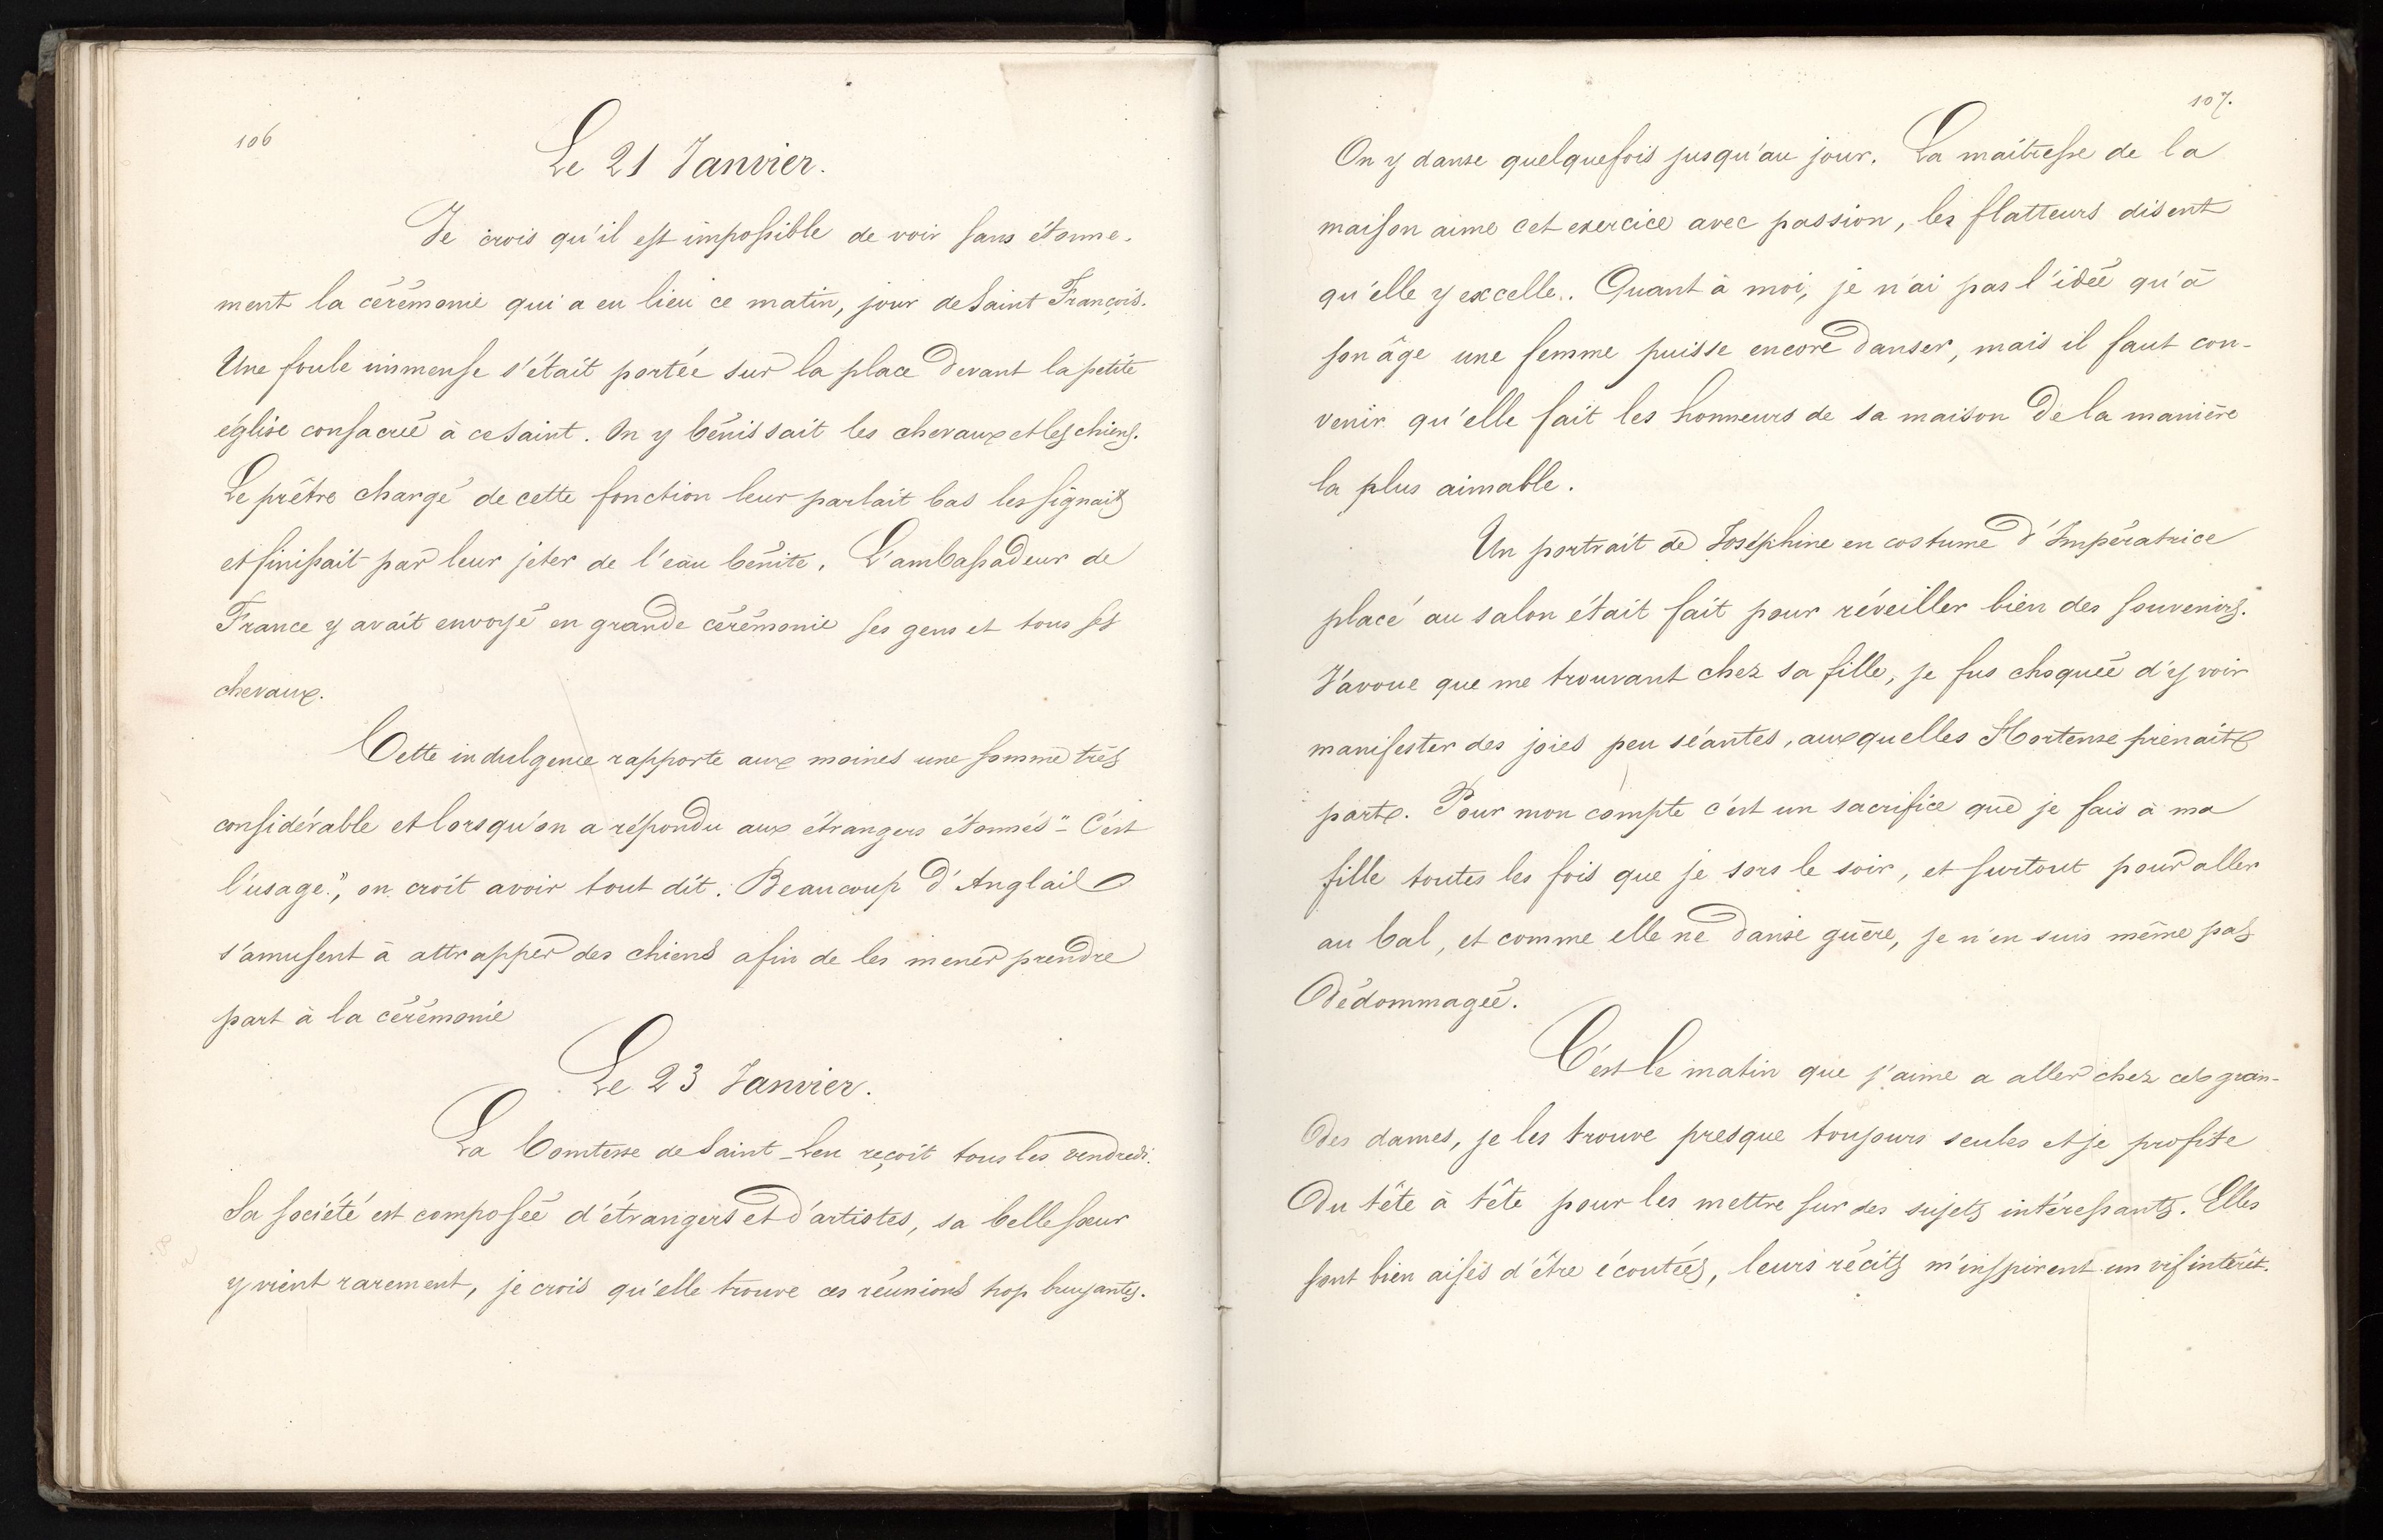 106
Le 21 Janvier.
Je crois qu'il est impossible de voir sans étonne-
ment la cérémonie qui a eu lieu ce matin, jour de Saint François.
Une foule immense s'était portée sur la place devant la petite
église consacrée à ce Saint. On y bénissait les chevaux et les chiens.
Le prêtre chargé de cette fonction leur parlait bas les signait
et finissait par leur jeter de l'eau bénite. L'ambassadeur de
France y avait envoyé en grande cérémonie ses gens et tous ses
chevaux.
Cette indulgence rapporte aux moines une somme très
considérable et lorsqu'on a répondu aux étrangers étonnés "- C'est
l'usage.", on croit avoir tout dit. Beaucoup d'Anglais
s'amusent à attrapper des chiens afin de les mener prendre
part à la cérémonie
Le 23 Janvier.
La Comtesse de Saint-Leu reçoit tous les vendredi.
Sa société est composée d'étrangers et d'artistes, sa belle sœur
y vient rarement, je crois qu'elle trouve ces réunions trop bruyantes.
107.
On y danse quelquefois jusqu'au jour. La maitresse de la
maison aime cet exercice avec passion, les flatteurs disent
qu'elle y excelle.. Quant à moi, je n'ai pas l'idée qu'à
son âge une femme puisse encore danser, mais il faut con-
venir qu'elle fait les honneurs de sa maison de la manière
la plus aimable.
Un portrait de Joséphine en costume d'Impératrice
placé au salon était fait pour réveiller bien des souvenirs.
J'avoue que me trouvant chez sa fille, je fus choquée d'y voir
manifester des joies peu séantes, auxquelles Hortense prenait
part. Pour mon compte c'est un sacrifice que je fais à ma
fille toutes les fois que je sors le soir, et surtout pour aller
au bal, et comme elle ne danse guère, je n'en suis même pas
dédommagée.
C'est le matin que j'aime a aller chez ces gran-
des dames, je les trouve presque toujours seules et je profite
du tête à tête pour les mettre sur des sujets intéressants. Elles
sont bien aises d'être écoutées, leurs récits m'inspirent un vif intérêt.